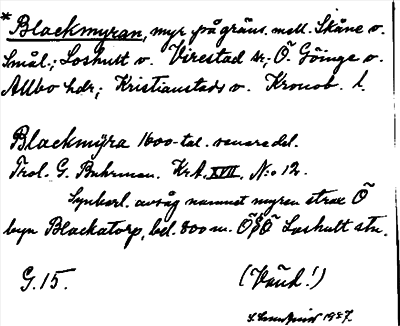 * Blackmyran, myr på gräns. mell. Skåne o.
Smål.; Loshult o. Virestad sr; Ö. Göinge o.
Allbo hdr; Kristianstads o. Kronob. l.
Blackmÿra 1600-tal. senare del.
Trol. G. Buhrman. Kr.A. XVII. N:o 12.
Synbarl. avsåg namnet myren strax Ö
byn Blackatorp, bel. 800 m. ÖSÖ Loshult stn.
G. 15. (Vänd!)
1927.